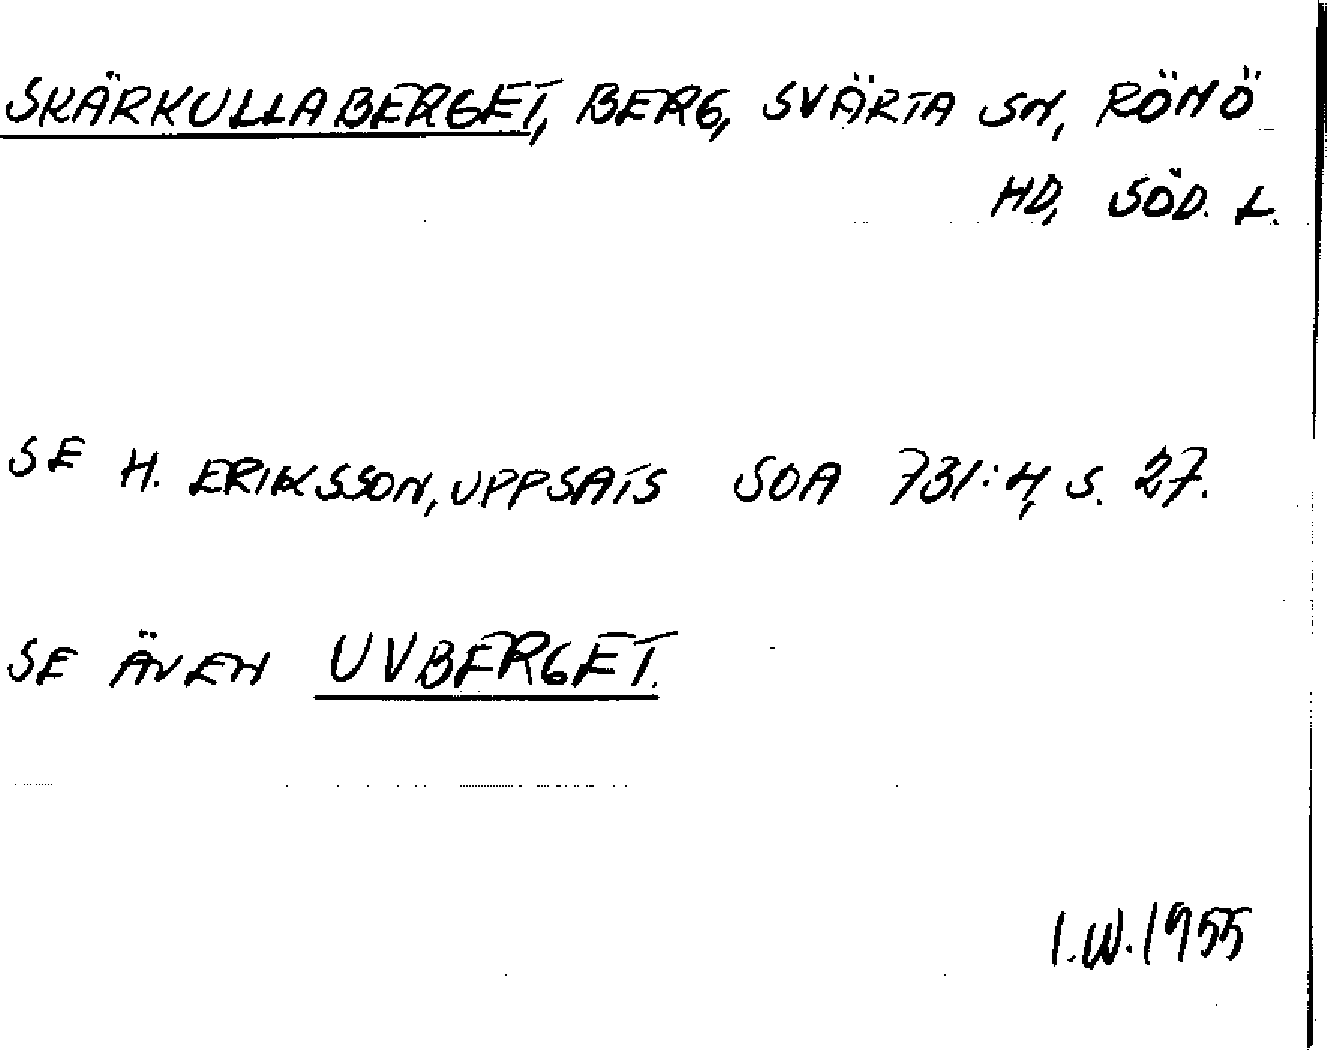 SKÄRKULLABERGET, BERG, SVÄRTA SN, RÖNÖ
HD, SÖD. L.
SE H. ERIKSSON, UPPSATS SOA 731:4, S. 27.
SE ÄVEN UVBERGET.
I.W. 1955